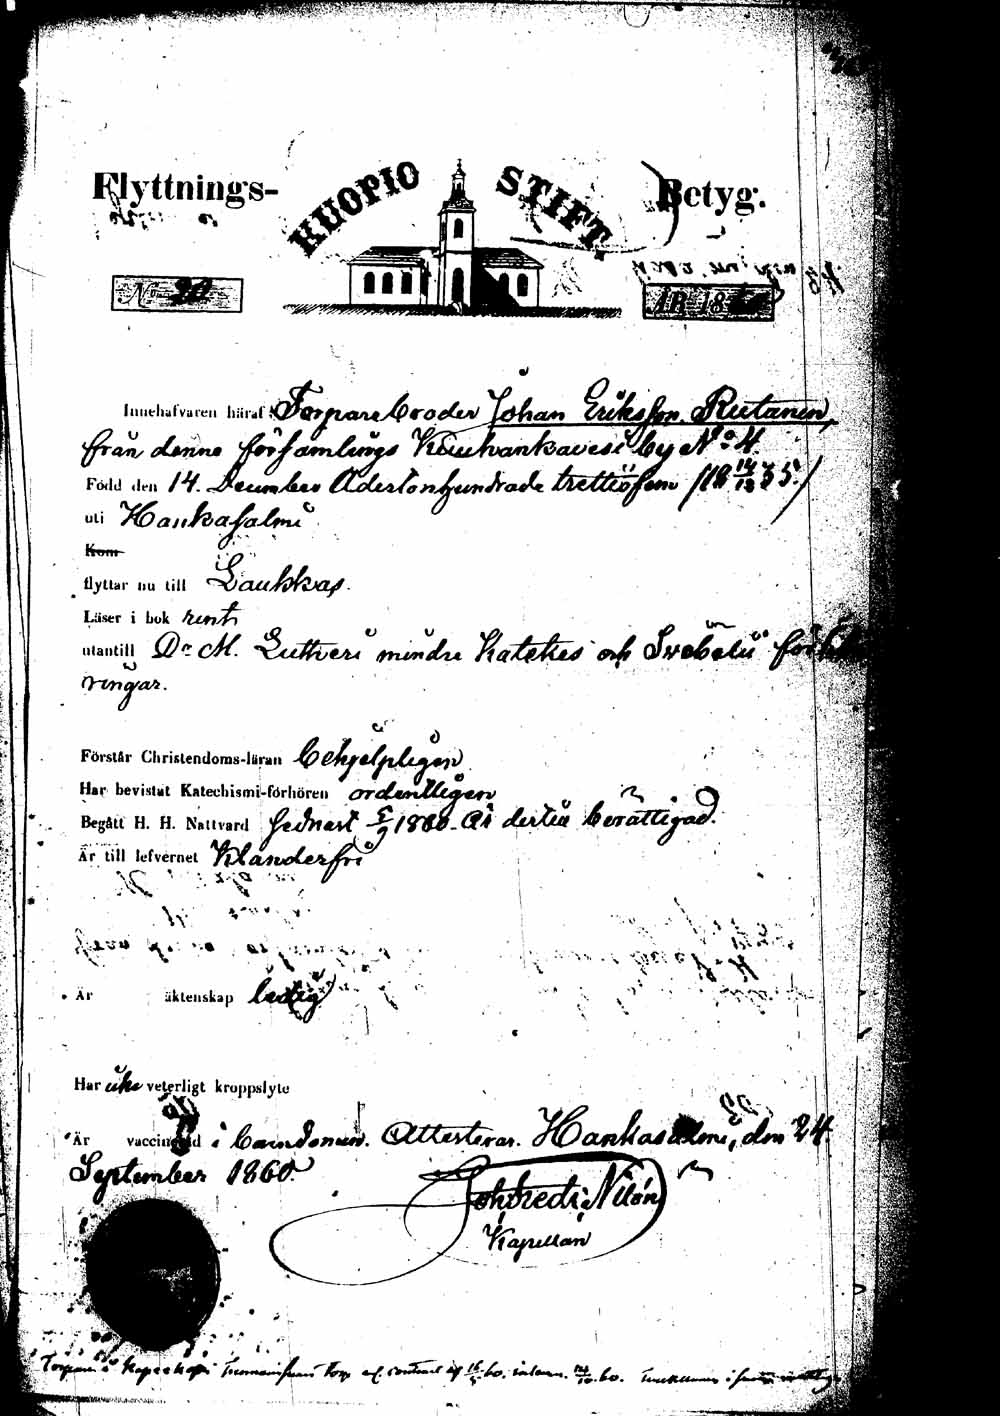 Flyttnings- KUOPIO STIFT. Betyg.
No 20 ÅR 18
Innehafvaren häraf: Torpare broder Johan Eriksson Rutanen,
från denne församlings Kouvankavesi by No 4.
Född den 14. December Adertonhundrade trettiofem (18 14/12 35.)
uti Hankasalmi
Kom
flyttar nu till Laukkas.
Läser i bok rent
utantill Dr M. Lutheri mindre Kateches och Svebelii förkla
ringar.
Förstår Christendoms-läran behjelpligen
Har bevistat Katechismi-förhören ordentligen
Begått H. H. Nattvard sednast 1860. Är dertill berättigad.
Är till lefvernet Klanderfri
Är äktenskap ledig
Har icke veterligt kroppslyte
Är vaccinerad i barndomen. Attesterar. Hankasalmi, den 24.
September 1860.
Nilon
Kapellan